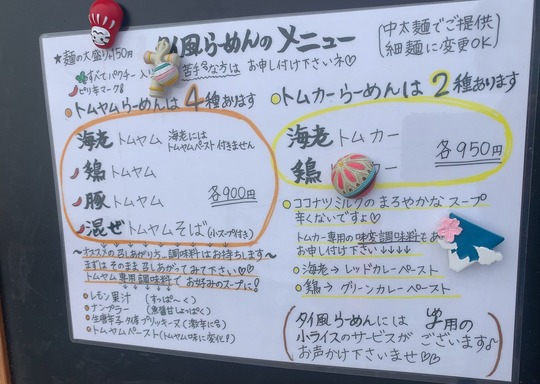 タイ風らーめんのメニュー
(中太麺でご提供
細麺に変更OK)
★麺の大盛り+150円
すべてパクチー入り 苦手な方は お申し付け下さいネ♡
ピリ辛マーク
●トムヤムらーめんは4種あります
海老トムヤム 海老には
トムヤムペースト付きません
鶏トムヤム
豚トムヤム 各900円
混ぜトムヤムそば(小スープ付き)
〜オススメの召しあがり方…調味料はお持ちします〜
まずはそのまま召しあがってみて下さい♡♡
トムヤム専用調味料でお好みのスープに!
●レモン果汁 (すっぱ〜く)
●ナンプラー (魚醤甘じょっぱく)
●生唐辛子 プリッキーヌ (激辛に)
●トムヤムペースト(トムヤム味に変化!)
●トムカーらーめんは2種あります
海老トムカー
鶏 ー 各950円
●ココナツミルクのまろやかなスープ
辛くないですよ♡
トムカー専用の味変調味料も
お申し付け下さい↓↓↓↓
●海老→レッドカレーペースト
●鶏→グリーンカレーペースト
(タイ風らーめんには 用の
小ライスのサービスがございます♪
お声かけ下さいませ♡♡)